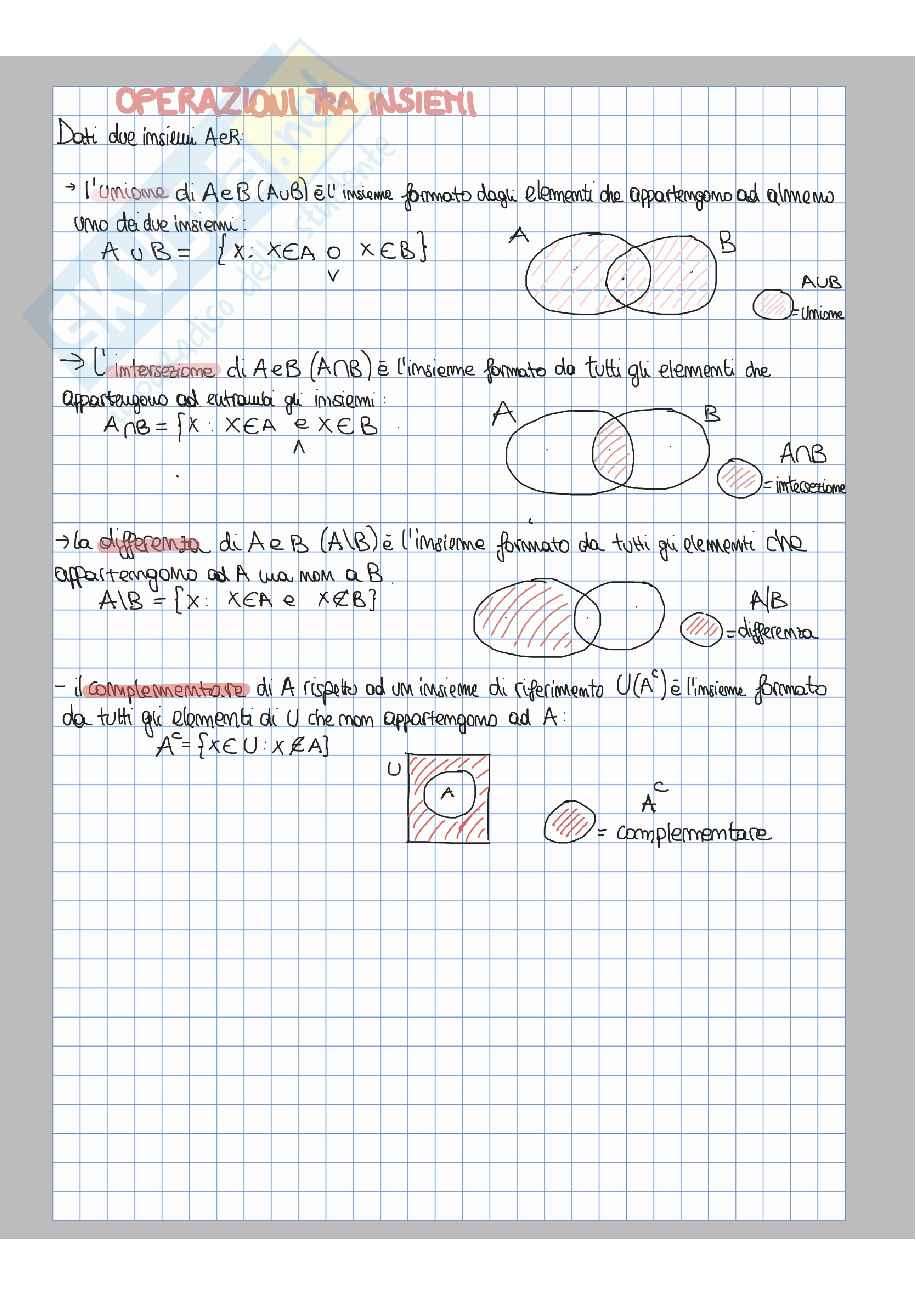 OPERAZIONI TRA INSIEMI
Dati due insiemi A e B:
→ l'unione di A e B (A∪B) è l'insieme formato dagli elementi che appartengono ad almeno
uno dei due insiemi:
A ∪ B = {x : x∈A o x∈B}
∨
A
B
A∪B
= unione
→ L'intersezione di A e B (A∩B) è l'insieme formato da tutti gli elementi che
appartengono ad entrambi gli insiemi:
A∩B = {x : x∈A e x∈B
∧
A
B
A∩B
= intersezione
→ La differenza di A e B (A\B) è l'insieme formato da tutti gli elementi che
appartengono ad A ma non a B.
A\B = {x : x∈A e x∉B}
A\B
= differenza
- il complementare di A rispetto ad un insieme di riferimento U (Aᶜ) è l'insieme formato
da tutti gli elementi di U che non appartengono ad A:
Aᶜ = {x∈U : x∉A}
U
A
Aᶜ
= complementare
SKUOLA.net
il paradiso dello studente